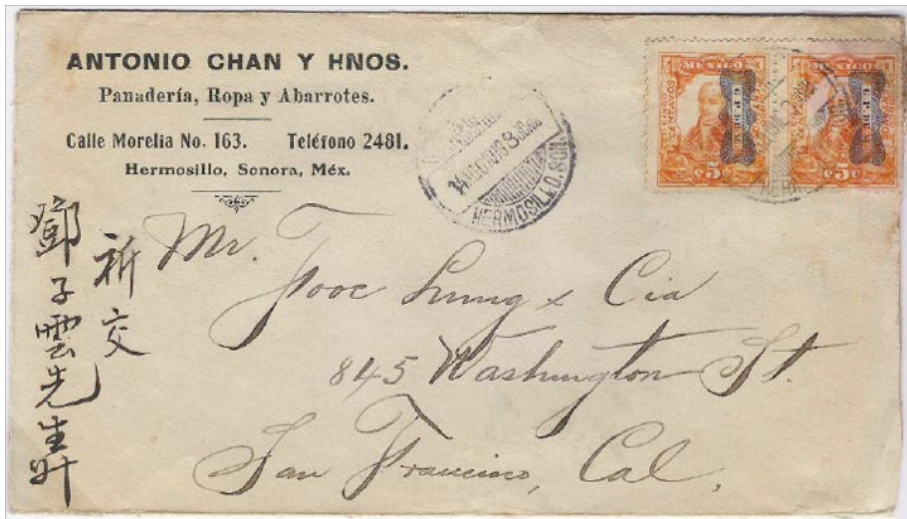 ANTONIO CHAN Y HNOS.
Panadería, Ropa y Abarrotes.
Calle Morelia No. 163. Teléfono 2481.
Hermosillo, Sonora, Méx.
HERMOSILLO, SON
MEXICO
5c
G.P.DE M.
5c
祈交
鄧子雲先生
Mr. Fooc Lung & Cia
845 Washington St.
San Francisco, Cal.